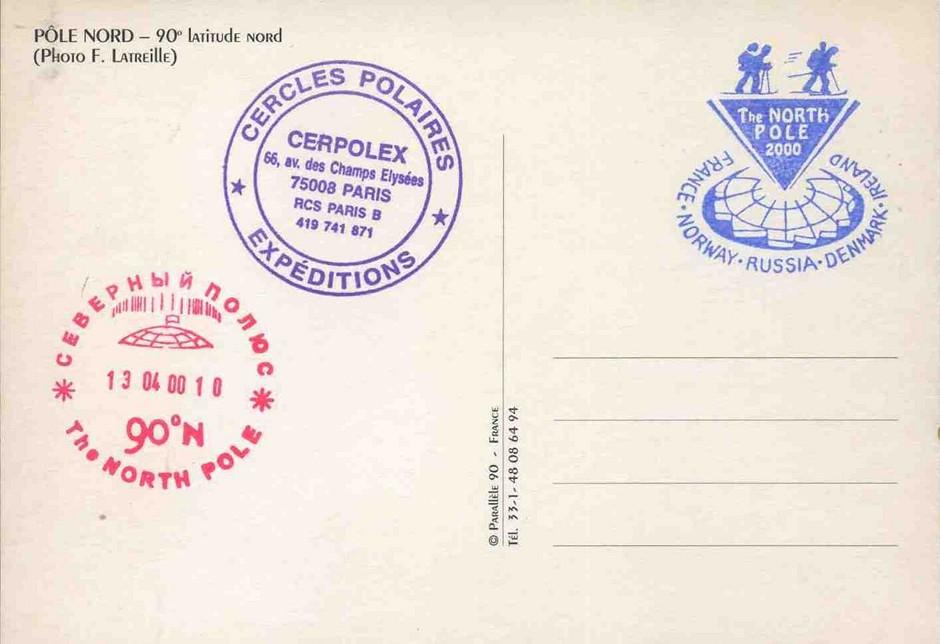 PÔLE NORD – 90° latitude nord
(Photo F. Latreille)
CERCLES POLAIRES
CERPOLEX
66, av. des Champs Elysées
75008 PARIS
RCS PARIS B
419 741 871
EXPÉDITIONS
The NORTH
POLE
2000
FRANCE · NORWAY · RUSSIA · DENMARK · IRELAND
СЕВЕРНЫЙ ПОЛЮС
13 04 00 10
90°N
The NORTH POLE
© Parallèle 90 - France
Tél. 33-1-48 08 64 94